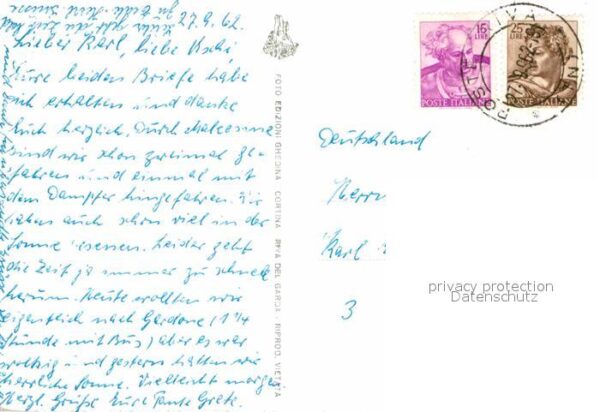 27.9.62.
Lieber Karl, liebe Uschi
Eure beiden Briefe habe
ich erhalten und danke
Euch herzlich. Durch Malcesine
sind wir schon zweimal ge-
fahren und einmal mit
dem Dampfer hingefahren. Wir
haben auch schon viel in der
Sonne gesessen. Leider geht
die Zeit ja immer zu schnell
herum. Heute wollten wir
eigentlich nach Gardone (1 1/4
Stunde mit Bus) aber es war
wolkig und gestern hatten wir
herrliche Sonne. Vielleicht morgen
Herzl. Grüße Eure Tante Grete.
FOTO EDIZIONI GHEDINA CORTINA - RIVA DEL GARDA - RIPROD. VIETATA
15
LIRE
POSTE ITALIANE
25
LIRE
POSTE ITALIANE
Deutschland
Herrn
Karl
3
privacy protection
Datenschutz